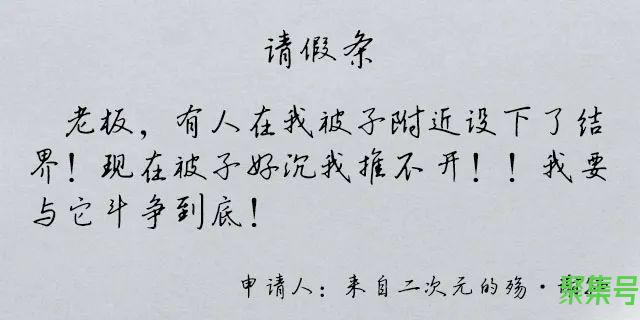 请假条
老板，有人在我被子附近设下了结
界！现在被子好沉我推不开！！我要
与它斗争到底！
申请人：来自二次元的殇·
聚集号